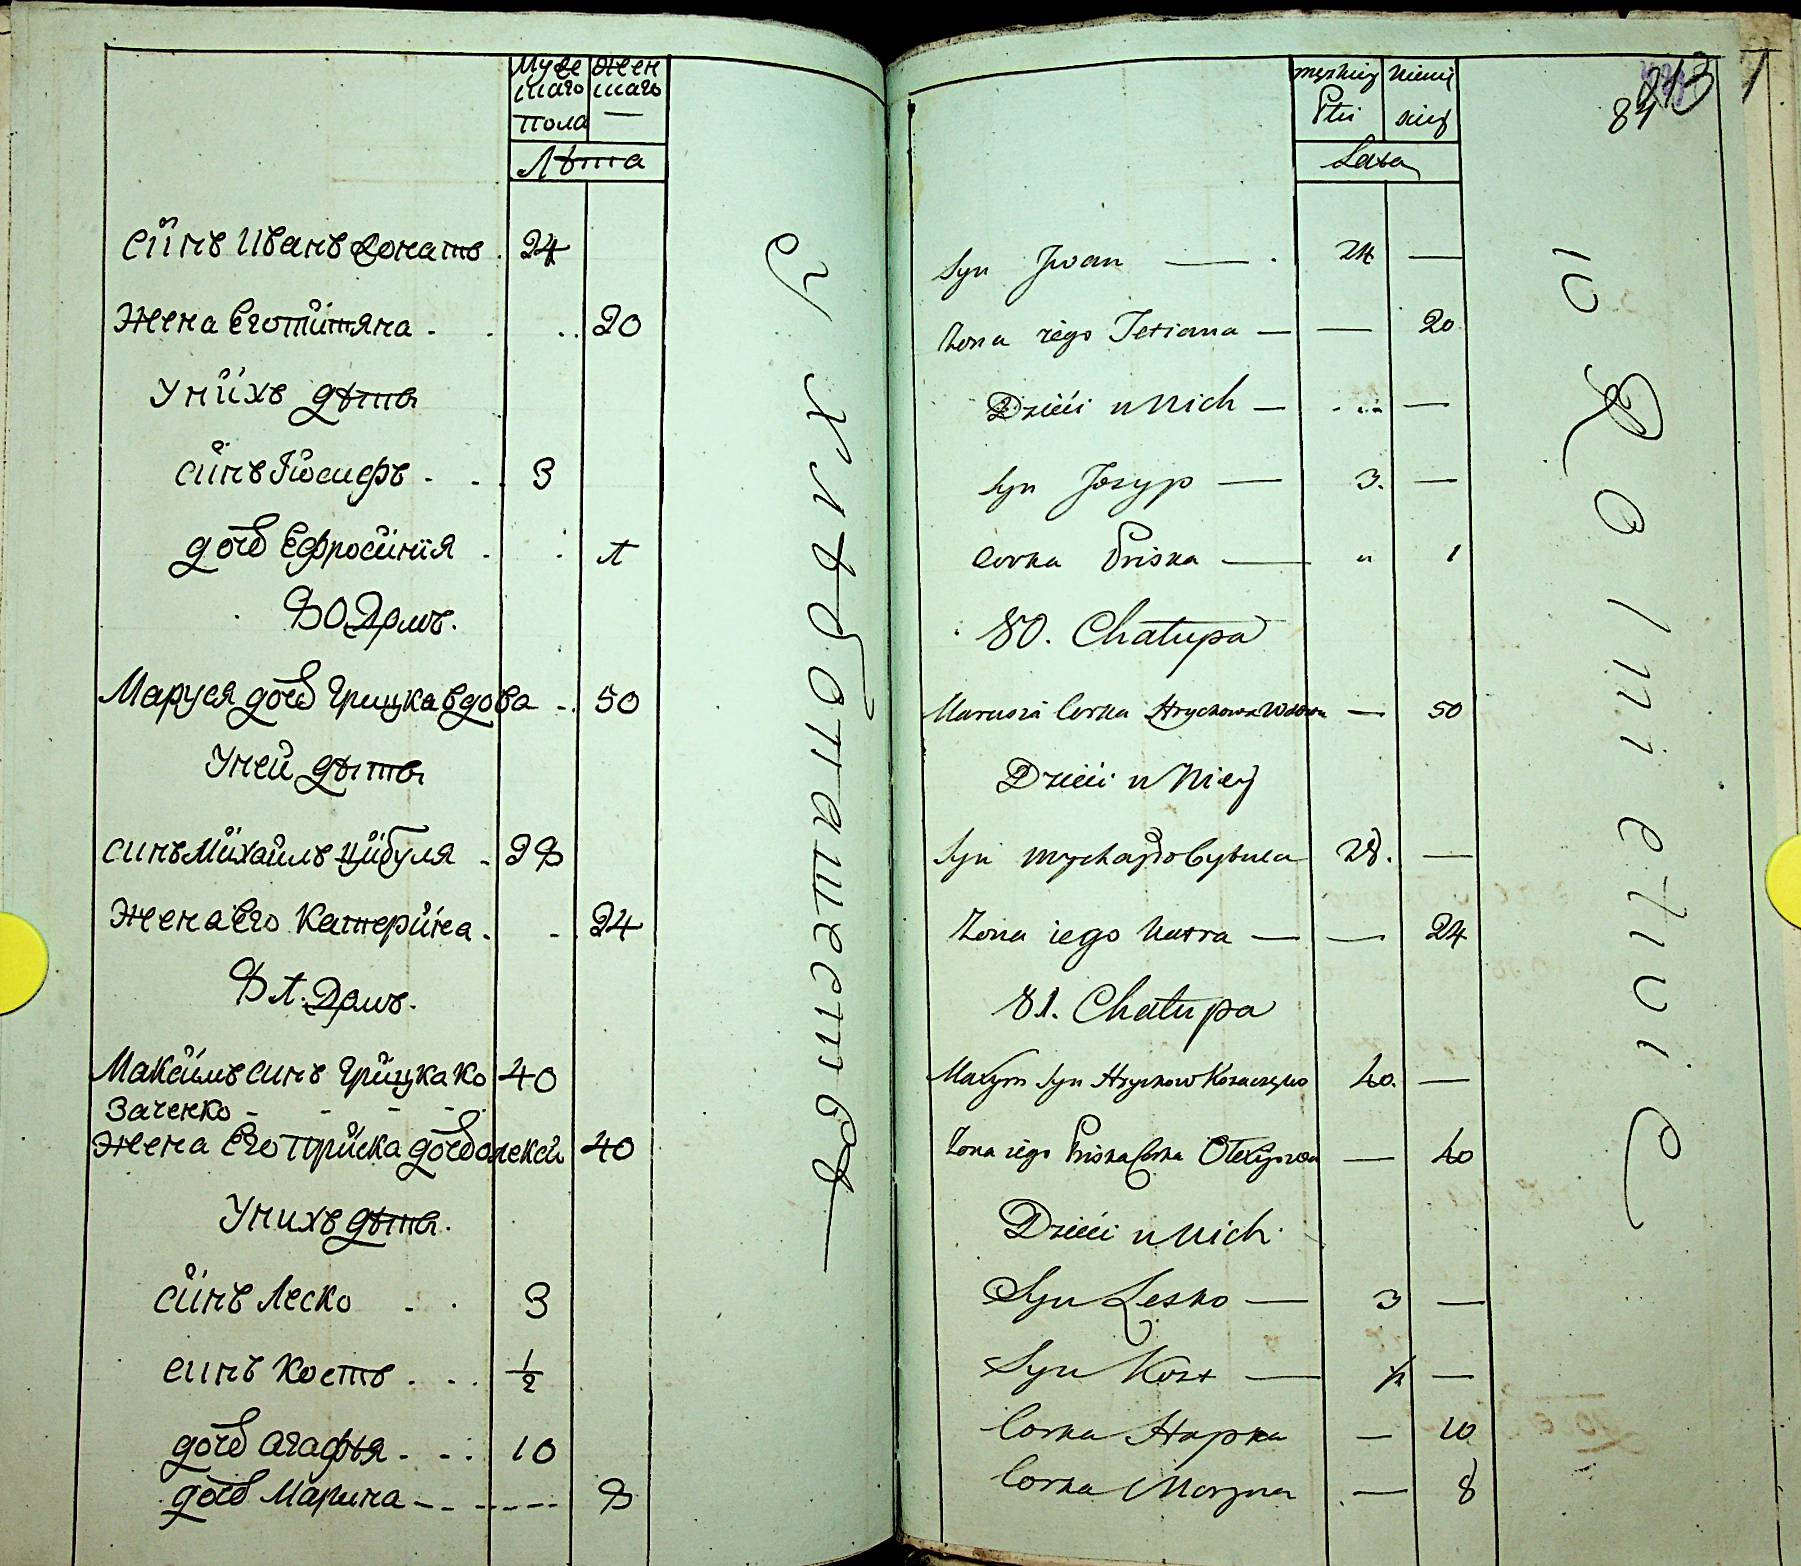 Муже жен
скаго скаго
пола —
Лѣта
синъ Иванъ Донатъ . 24
жена Его Титяна . . . . 20
У нихъ дѣти
синъ Йосифъ . . . 3
дочь Ефросинія . . 1
80 Домъ.
Маруся дочь Грицка вдова . . 50
У ней дѣти
синъ Михаилъ Цибуля . 28
жена Его Катерина . . 24
81. Домъ.
Максимъ синъ Грицка Ко 40
заченко - - - -
жена Его Приска дочь олексы 40
У нихъ дѣти.
синъ Леско . . 3
синъ Кость . . . 1/2
дочь агафья . . . 10
дочь Марина - - - - - 8
У хлѣбопашествѣ —
męskiej żeńs
Płci kiej
Lata
213
84
Syn Jwan — . 24 —
Żona iego Tetiana — — 20
Dzieci u Nich — . . . —
Syn Jozyp — 3. —
Corka Priska — " 1
80. Chałupa
Marusia Corka Hryckowa Wdowa — 50
Dzieci u Niey
Syn Mychayło Cybula 28. —
Żona iego Katra — — 24
81. Chałupa
Maxym Syn Hryckow Kozaczenko 40. —
Żona iego Priska Corka Olexyowa — 40
Dzieci u Nich
Syn Lesko — 3 —
Syn Kost — 1/2 —
Corka Hapka — 10
Corka Maryna . — 8
w Rolnictwie